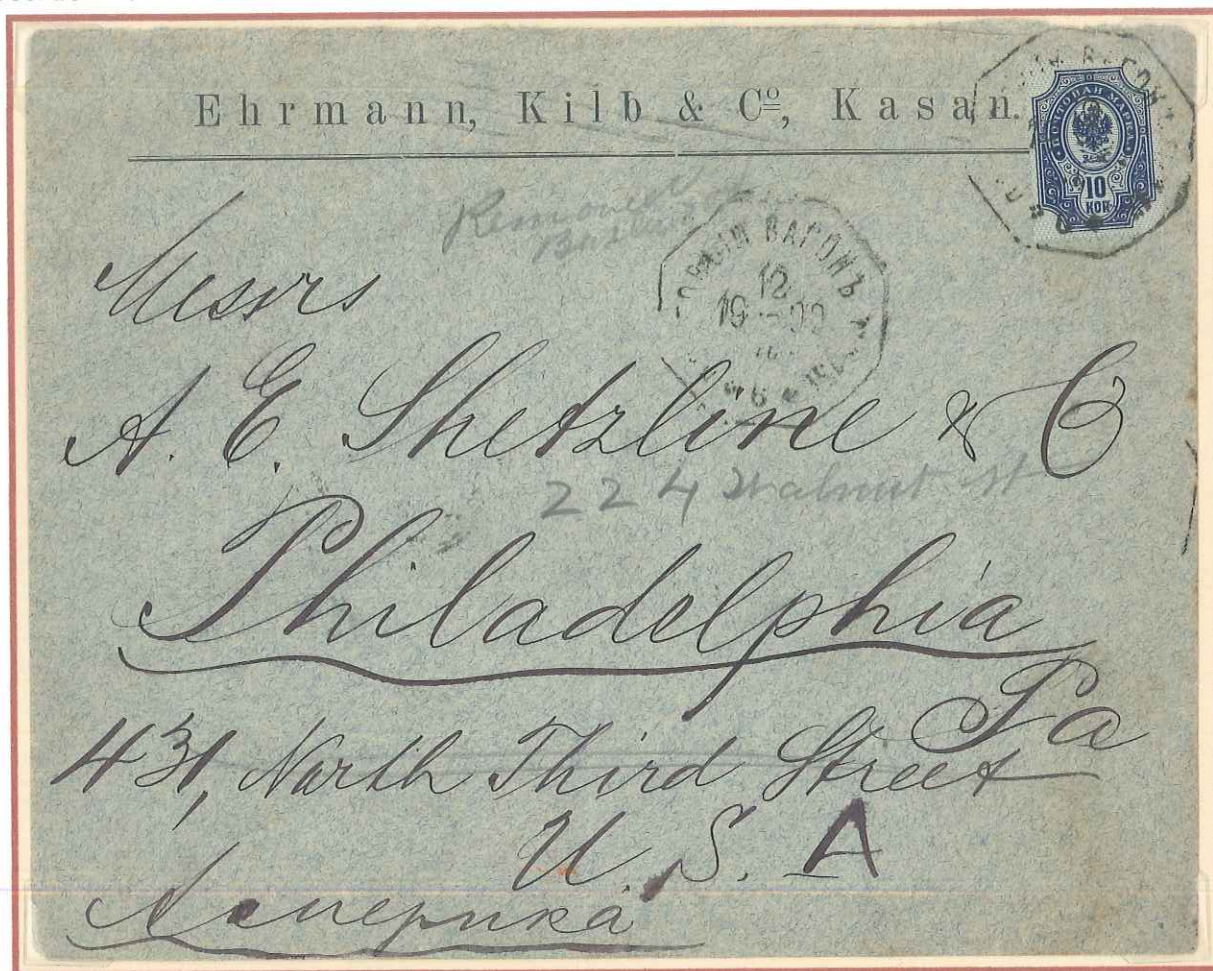 Ehrmann, Kilb & Cº, Kasan.
ПОЧТОВАЯ МАРКА
10
КОП
ВАГОНЪ
12
Messrs
A. E. Shetzline & C
224 Walnut St
Philadelphia
Pa
431, North Third Street
U. S. A
Америка